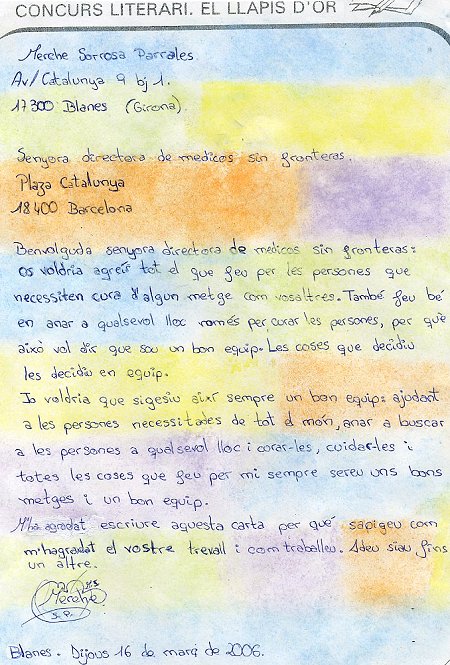 CONCURS LITERARI. EL LLAPIS D'OR
Merche Sorrosa Parrales
Av/ Catalunya 9 bj 1.
17300 Blanes (Girona).
Senyora directora de medicos sin fronteras.
Plaza Catalunya
18400 Barcelona
Benvolguda senyora directora de medicos sin fronteras:
os voldria agreir tot el que feu per les persones que
necessiten cura d'algun metge com vosaltres. També feu bé
en anar a qualsevol lloc només per curar les persones, per què
això vol dir que sou un bon equip. Les coses que decidiu
les decidiu en equip.
Jo voldria que sigesiu així sempre un bon equip: ajudant
a les persones necessitades de tot el món, anar a buscar
a les persones a qualsevol lloc i corar-les, cuidar-les i
totes les coses que feu per mi sempre sereu uns bons
metges i un bon equip.
M'ha agradat escriure aquesta carta per què sapigeu com
m'hagradat el vostre trevall i com traballeu. Adeu siau fins
un altre.
Merche
S.P.
Blanes. Dijous 16 de març de 2006.